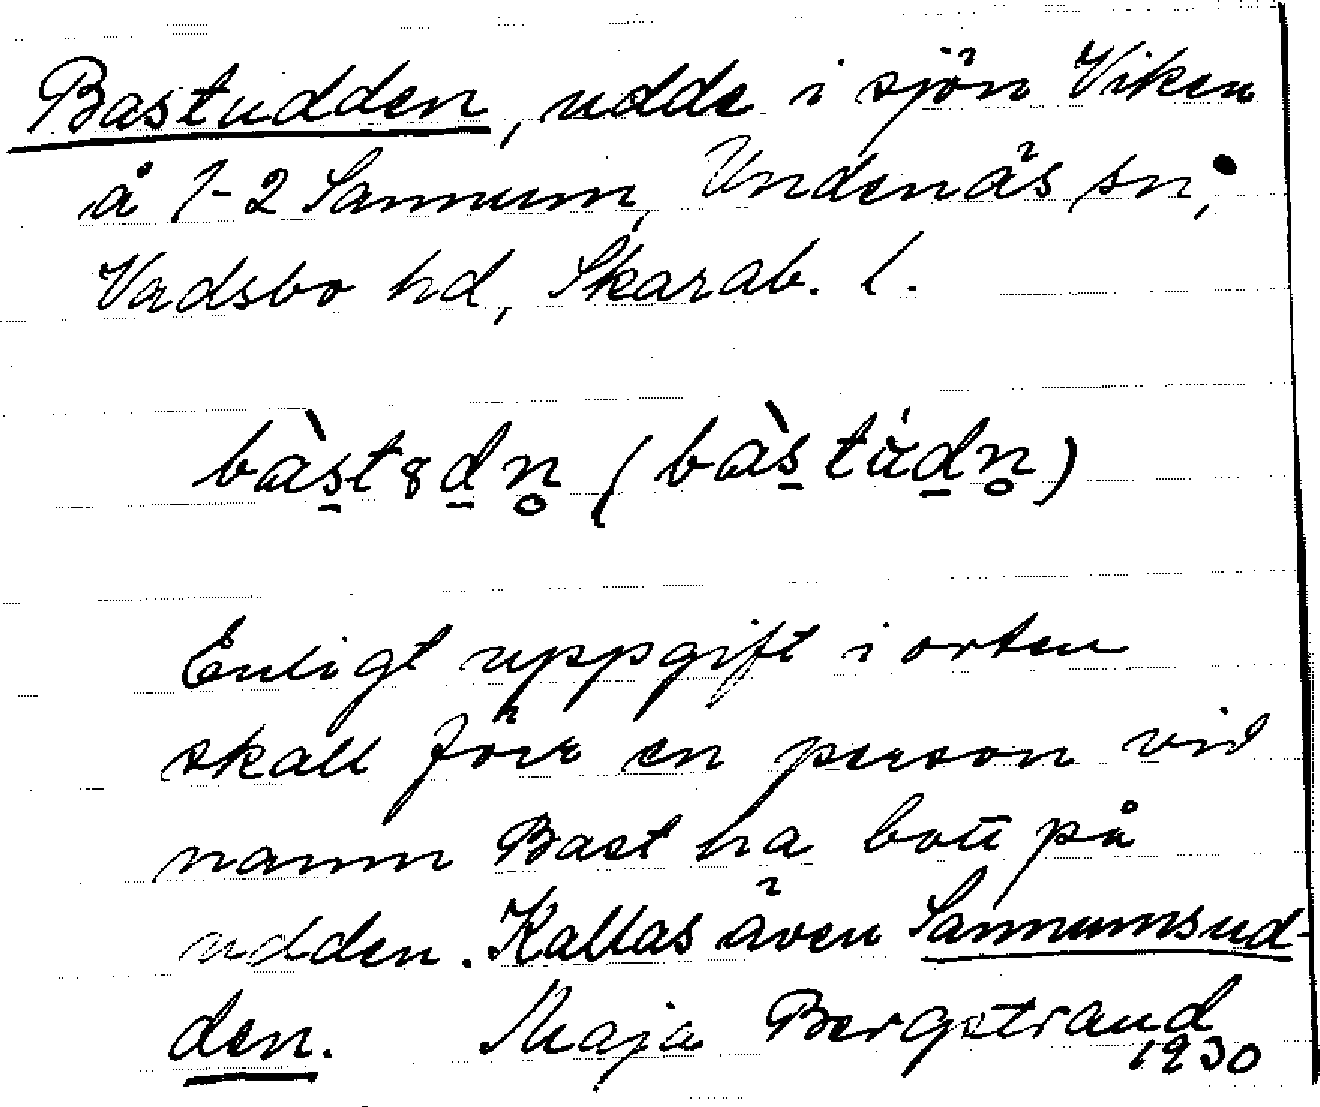 Bastudden, udde i sjön Viken
å 1-2 Sannum, Undenäs sn,
Vadsbo hd, Skarab. l.
bàst8dn̥ (bàstädn̥)
Enligt uppgift i orten
skall förr en person vid
namn Bast ha bott på
udden. Kallas även Sannumsud-
den. Maja Bergstrand
1930